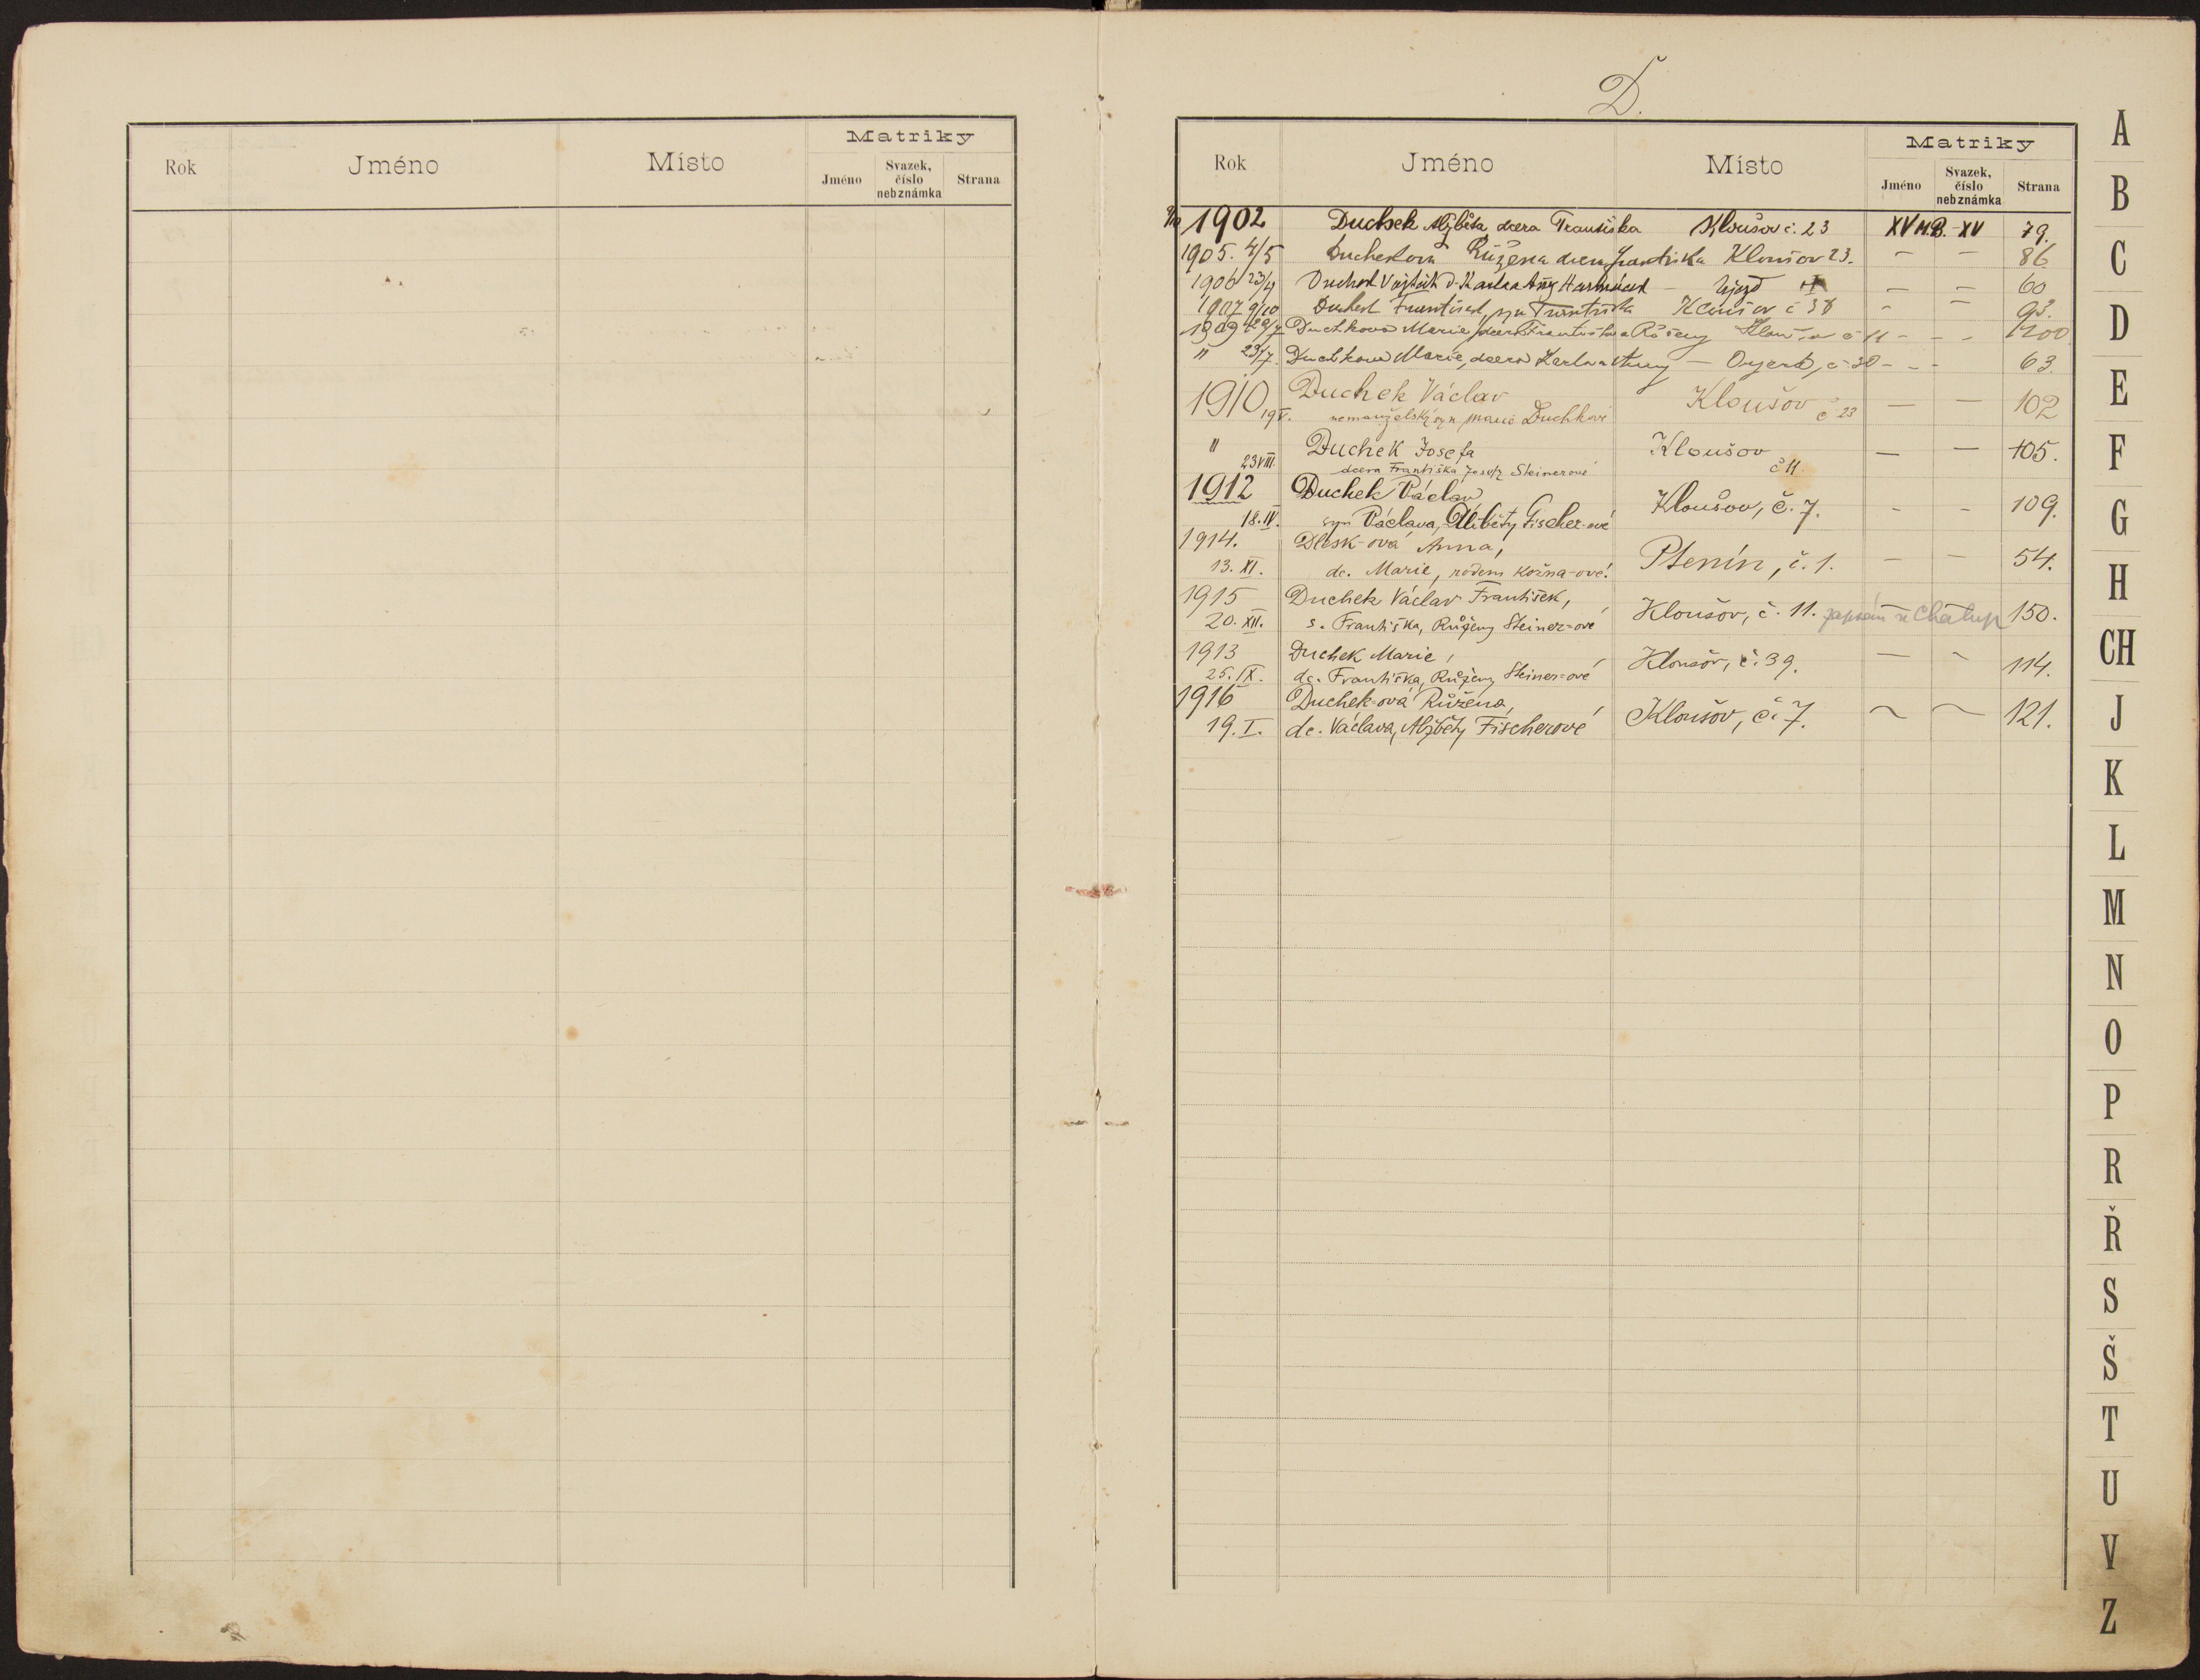 Rok Jméno Místo Matriky
Jméno Svazek, číslo neb známka Strana
D.
Rok Jméno Místo Matriky
Jméno Svazek, číslo neb známka Strana
1902 Duchek Alžběta dcera Františka Kloušov č. 23 XV M.B. XV 79.
1905. 4/5 Duchekova Růžena dcera Františka Kloušov 23. — — 86
1906 23/4 Duchek Vojtěch Karla a Anny — — 60
1907 9/10 Duchek František, syn Františka Kloušov č 38 - = 93.
1909 Duchkova Marie, dcera Františka a Růženy Kloušov č 11 - - - 100
" 23/7. Duchkova Marie, dcera Karla a Anny — č 30 - - - 63.
1910 Duchek Václav Kloušov č 23 — — 102
19 V. nemanželský syn Marie Duchkové
" Duchek Josefa Kloušov č 11. — — 105.
23 VIII. dcera Františka, Steinerové
1912 Duchek Václav Kloušov, č. 7. - - 109.
18. IV. syn Václava, Alžběty Fischer-ové
1914. Dlesk-ová Anna, Ptenín, č. 1. — — 54.
13. XI. dc. Marie, rodem Kožna-ové.
1915 Duchek Václav František, Kloušov, č. 11. zapsán v Chalup 150.
20. XII. s. Františka, Růženy Steiner=ové
1913 Duchek Marie, Kloušov, č. 39. — ~ 114.
25. IX. dc. Františka, Růženy Steiner=ové
1916 Duchek-ová Růžena, Kloušov, č. 7. ~ ~ 121.
19. I. dc. Václava, Alžběty Fischerové
A
B
C
D
E
F
G
H
CH
J
K
L
M
N
O
P
R
Ř
S
Š
T
U
V
Z